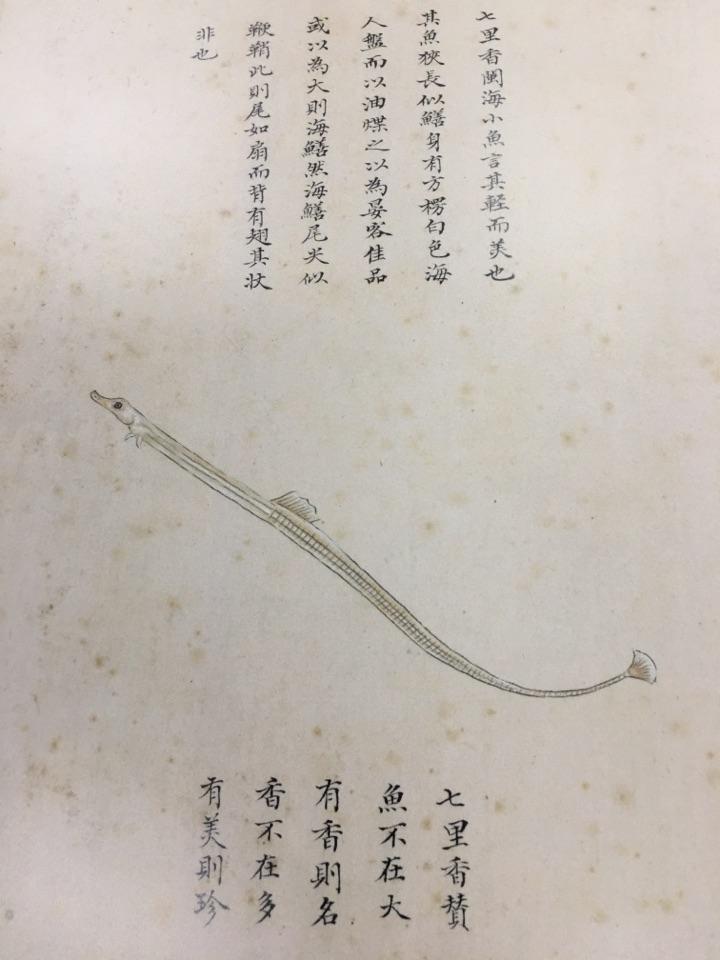 七里香閩海小魚言其輕而美也
其魚狹長似鱔身有方楞白色海
人盤而以油煠之以為宴客佳品
或以為大則海鱔然海鱔尾尖似
鞭鞘此則尾如扇而背有翅其狀
非也
七里香賛
魚不在大
有香則名
香不在多
有美則珍